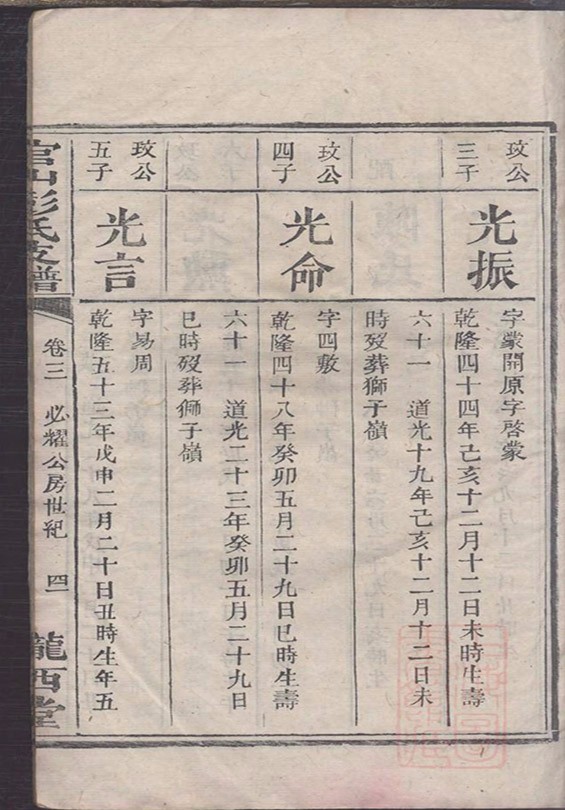 玫公
三子
光振
字蒙開原字啓蒙
乾隆四十四年己亥十二月十二日未時生壽
六十一 道光十九年己亥十二月十二日未
時歿葬獅子嶺
玫公
四子
光命
字四敷
乾隆四十八年癸卯五月二十九日巳時生壽
六十一 道光二十三年癸卯五月二十九日
巳時歿葬獅子嶺
玫公
五子
光言
字易周
乾隆五十三年戊申二月二十日丑時生年五
官山彭氏支譜 卷三 必耀公房世紀 四 隴西堂